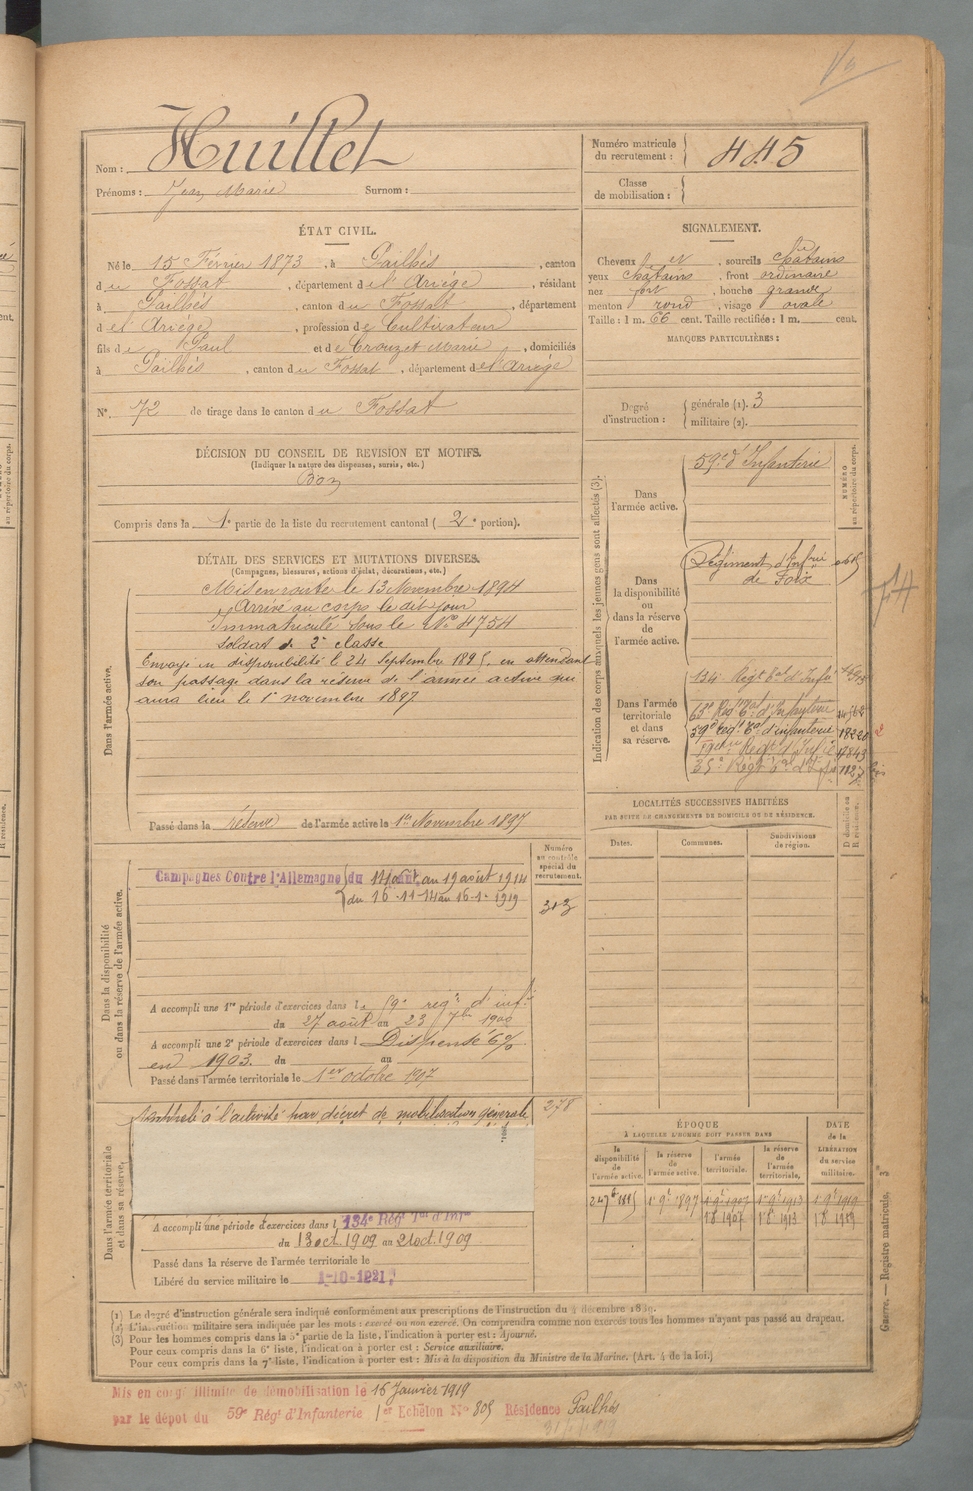 Nom : Huillet
Prénoms : Jean Marie Surnom :
Numéro matricule du recrutement : 445
Classe de mobilisation :
ÉTAT CIVIL.
Né le 15 Février 1873, à Pailhès, canton
du Fossat, département de l'Ariège, résidant
à Pailhès, canton du Fossat, département
de l'Ariège, profession de Cultivateur
fils de Paul et de Crouzet Marie, domiciliés
à Pailhès, canton du Fossat, département de l'Ariège
N°. 72 de tirage dans le canton du Fossat
SIGNALEMENT.
Cheveux , sourcils châtains
yeux châtains, front ordinaire
nez fort, bouche grande
menton rond, visage ovale
Taille : 1 m. 66 cent. Taille rectifiée : 1 m. cent.
MARQUES PARTICULIÈRES :
Degré d'instruction : générale (1). 3
militaire (2).
DÉCISION DU CONSEIL DE REVISION ET MOTIFS.
(Indiquer la nature des dispenses, sursis, etc.)
Bon
Compris dans la 1e partie de la liste du recrutement cantonal (2e portion).
DÉTAIL DES SERVICES ET MUTATIONS DIVERSES.
(Campagnes, blessures, actions d'éclat, décorations, etc.)
Dans l'armée active.
Mis en route le 13 Novembre 1894
Arrivé au corps le dit jour
Immatriculé sous le No 4754
Soldat de 2e classe
Envoyé en disponibilité le 24 septembre 1895, en attendant
son passage dans la réserve de l'armée active qui
aura lieu le 1er novembre 1897
Passé dans la réserve de l'armée active le 1er Novembre 1897
Indication des corps auxquels les jeunes gens sont affectés (3).
NUMÉRO au répertoire du corps.
Dans l'armée active.
59e d'Infanterie
Dans la disponibilité ou dans la réserve de l'armée active.
Régiment d'Infrie
de Foix
Dans l'armée territoriale et dans sa réserve.
134e Régt tal d'Infie
63e Régt tal d'Infanterie
59e Régt tal d'infanterie 18220
35e Régt
LOCALITÉS SUCCESSIVES HABITÉES
PAR SUITE DE CHANGEMENTS DE DOMICILE OU DE RÉSIDENCE.
Dates. Communes. Subdivisions de région. D domicile ou R résidence.
Dans la disponibilité ou dans la réserve de l'armée active.
Numéro au contrôle spécial du recrutement.
Campagnes Contre l'Allemagne du au 19 août 1914
du 16-11-14 au 16-1-1919
313
A accompli une 1re période d'exercices dans le 59e régt d'infie
du 27 août au 23 7bre 1900
A accompli une 2e période d'exercices dans l Dispensé 6%
en 1903. du au
Passé dans l'armée territoriale le 1er octobre 1907
Dans l'armée territoriale et dans sa réserve.
Rappelé à l'activité par décret de mobilisation générale
278
A accompli une période d'exercices dans l 134e Régt Tal d'Infie
du 13 oct. 1909 au 21 oct. 1909
Passé dans la réserve de l'armée territoriale le
Libéré du service militaire le 1-10-1921
ÉPOQUE
À LAQUELLE L'HOMME DOIT PASSER DANS
la disponibilité de l'armée active. la réserve de l'armée active. l'armée territoriale. la réserve de l'armée territoriale.
DATE de la LIBÉRATION du service militaire.
24 7bre 1895 1er 9bre 1897 1er 9bre 1907 1er 9bre 1913 1er 9bre 1919
1 8bre 1907 1 8bre 1913 1 8bre 1919
(1) Le degré d'instruction générale sera indiqué conformément aux prescriptions de l'instruction du 4 décembre 1889.
(2) L'instruction militaire sera indiquée par les mots : exercé ou non exercé. On comprendra comme non exercés tous les hommes n'ayant pas passé au drapeau.
(3) Pour les hommes compris dans la 5e partie de la liste, l'indication à porter est : Ajourné.
Pour ceux compris dans la 6e liste, l'indication à porter est : Service auxiliaire.
Pour ceux compris dans la 7e liste, l'indication à porter est : Mis à la disposition du Ministre de la Marine. (Art. 4 de la loi.)
Guerre. — Registre matricule.
Mis en congé illimité de démobilisation le 16 Janvier 1919
par le dépôt du 59e Régt d'Infanterie 1er Echelon No 805 Résidence Pailhès